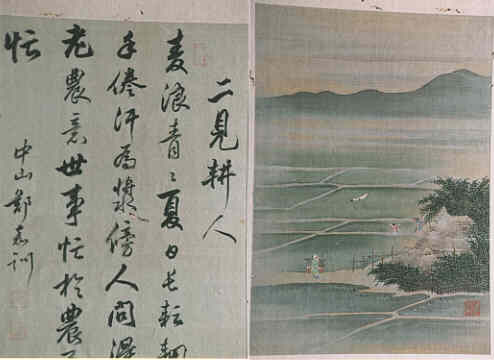 二見耕人
麦浪青〻夏日長耘耡
手倦汗為漿傍人問得
老農意世事忙於農
忙
中山鄭嘉訓